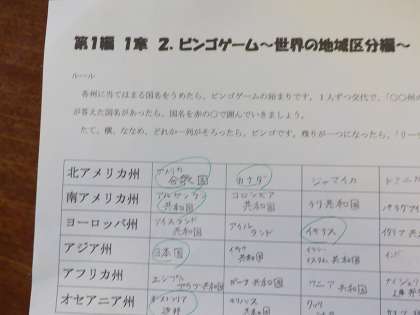 第1編 1章 2. ビンゴゲーム～世界の地域区分編～
ルール
各州に当てはまる国名をうめたら、ビンゴゲームの始まりです。1人ずつ交代で、「○○州の
が答えた国名があったら、国名を赤の○で囲んでいきましょう。
たて、横、ななめ、どれか一列がそろったら、ビンゴです。残りが一つになったら、「リー
北アメリカ州 アメリカ合衆国 カナダ ジャマイカ ドミニカ
南アメリカ州 アルゼンチン共和国 コロンビア共和国 チリ共和国
ヨーロッパ州 アイスランド共和国 アイルランド イギリス イタリア共
アジア州 日本国 イラク共和国 イラン・イスラム共和国 インド
アフリカ州 エジプト・アラブ共和国 ガーナ共和国 ケニア共和国
オセアニア州 オーストラリア連邦 キリバス共和国